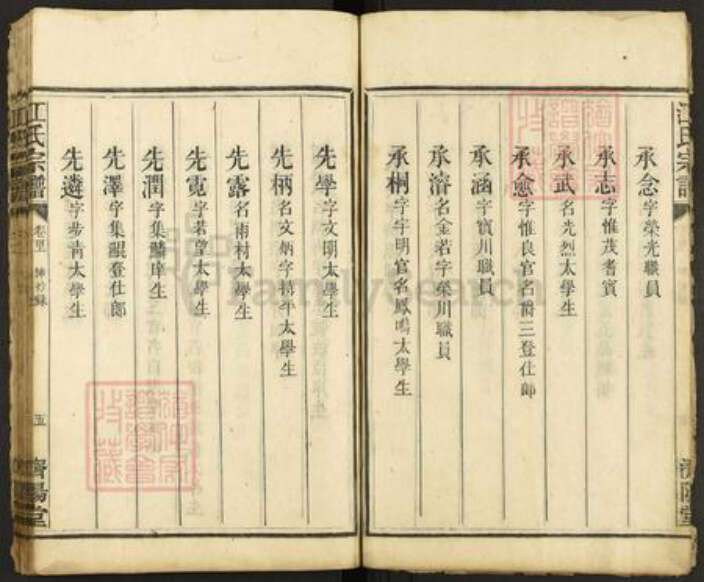 承念字榮光職員
承志字惟茂耆賓
承武名光烈太學生
承愈字惟良官名爵三登仕郎
承涵字寶川職員
承溶名金若字榮川職員
承桐字宇明官名鳳鳴太學生
先學字文明太學生
先柄名文炳字積平太學生
先露名雨村太學生
先霓字若望太學生
先潤字集麟庠生
先澤字集鯤登仕郎
先遴字步青太學生
江氏宗譜
五
濟陽堂
江氏宗譜
濟陽堂
FamilySearch